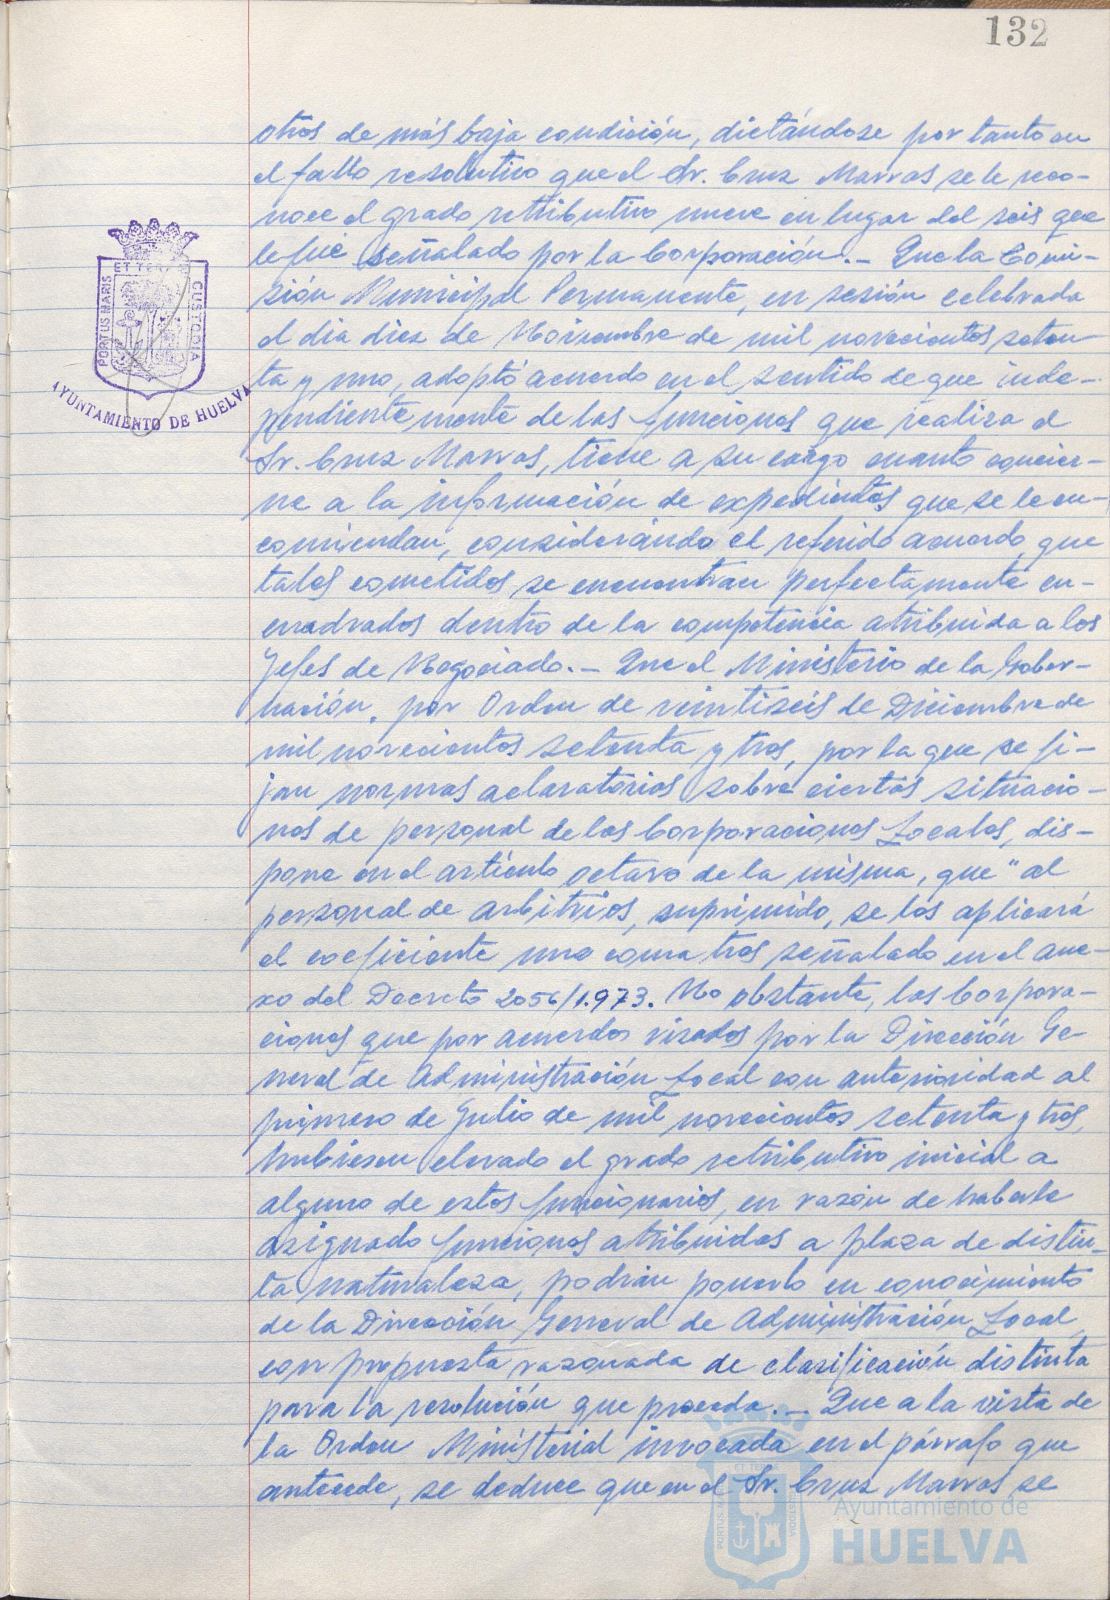 132
otros de más baja condición, dictándose por tanto en
el fallo resolutivo que el Sr. Cruz Marras se le reco-
noce el grado retributivo nueve en lugar del seis que
le fué señalado por la Corporación.- Que la Comi-
sión Municipal Permanente, en sesión celebrada
el dia diez de Noviembre de mil novecientos seten-
ta y uno, adoptó acuerdo en el sentido de que inde-
pendientemente de las funciones que realiza el
Sr. Cruz Marras, tiene a su cargo cuanto concier-
ne a la información de expedientes que se le en-
comiendan, considerando el referido acuerdo que
tales cometidos se encuentran perfectamente en-
cuadrados dentro de la competencia atribuida a los
Jefes de Negociado.- Que el Ministerio de la Gober-
nación, por Orden de veintiseis de Diciembre de
mil novecientos setenta y tres, por la que se fi-
jan normas aclaratorias sobre ciertas situacio-
nes de personal de las Corporaciones Locales, dis-
pone en el artículo octavo de la misma, que "al
personal de arbitrios, suprimido, se les aplicará
el coeficiente uno coma tres señalado en el ane-
xo del Decreto 2056/1.973. No obstante, las Corpora-
ciones que por acuerdos visados por la Dirección Ge-
neral de Administración Local con anterioridad al
primero de Julio de mil novecientos setenta y tres,
hubiesen elevado el grado retributivo inicial a
alguno de estos funcionarios, en razón de haberle
asignado funciones atribuidas a plaza de distin-
ta naturaleza, podrán ponerlo en conocimiento
de la Dirección General de Administración Local,
con propuesta razonada de clasificación distinta
para la resolución que proceda.- Que a la vista de
la Orden Ministerial invocada en el párrafo que
antecede, se deduce que en el Sr. Cruz Marras se
PORTUS MARIS ET TERRAE CUSTODIA
AYUNTAMIENTO DE HUELVA
Ayuntamiento de
HUELVA